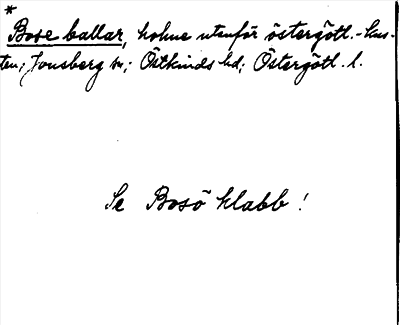 *
Bose ballar, holme utanför östergötl.-kus-
ten; Jonsberg sn; Östkinds hd; Östergötl. l.
Se Bosö klabb!